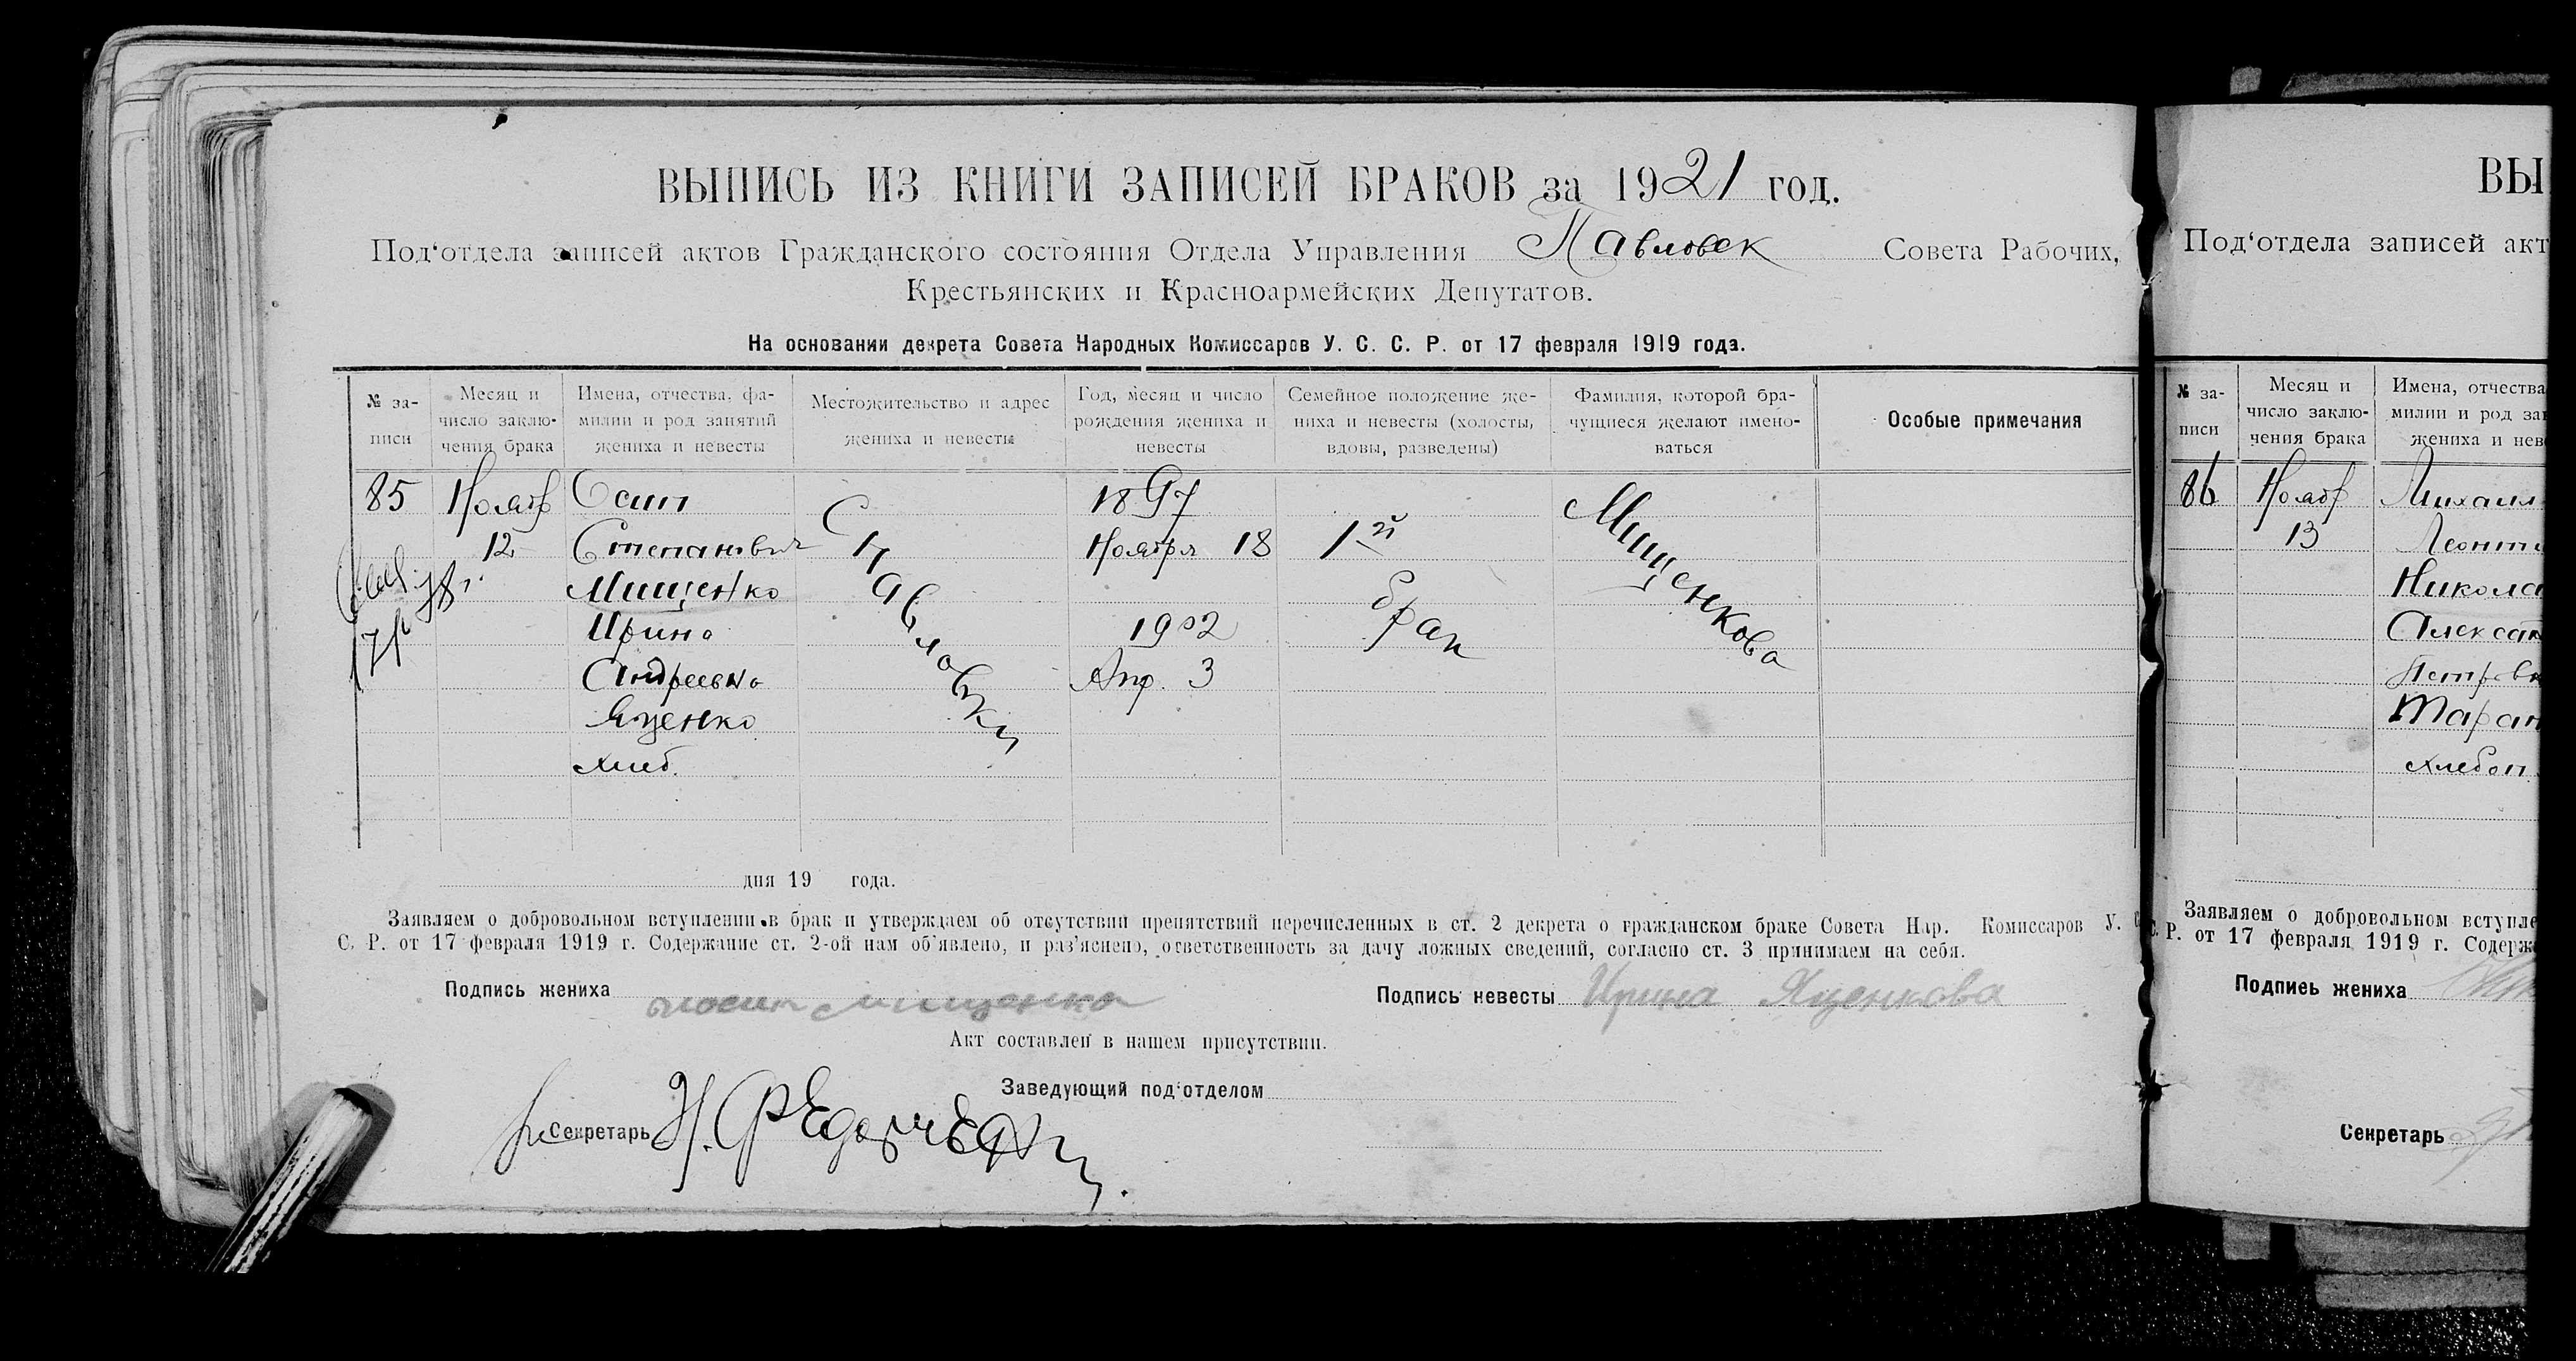 ВЫПИСЬ ИЗ КНИГИ ЗАПИСЕЙ БРАКОВ за 1921 год.
Под‘отдела записей актов Гражданского состояния Отдела Управления Павловск Совета Рабочих,
Крестьянских и Красноармейских Депутатов.
На основании декрета Совета Народных Комиссаров У. С. С. Р. от 17 февраля 1919 года.
№ за-
писи
Месяц и
число заклю-
чения брака
Имена, отчества, фа-
милии и род занятий
жениха и невесты
Местожительство и адрес
жениха и невесты
Год, месяц и число
рождения жениха и
невесты
Семейное положение же-
ниха и невесты (холосты,
вдовы, разведены)
Фамилия, которой бра-
чущиеся желают имено-
ваться
Особые примечания
85
Ноябр
12
Осип
Степанович
Мищенко
Ирина
Андреевна
Яценко
хлеб.
С Павловки
1897
Ноября 18
1902
Апр. 3
1й
брак
Мищенкова
дня 19 года.
Заявляем о добровольном вступлении в брак и утверждаем об отсутствии препятствий перечисленных в ст. 2 декрета о гражданском браке Совета Нар. Комиссаров У. С.
С. Р. от 17 февраля 1919 г. Содержание ст. 2-ой нам об‘явлено, и раз‘яснено, ответственность за дачу ложных сведений, согласно ст. 3 принимаем на себя.
Подпись жениха Мищенко
Подпись невесты Ирина Яценкова
Акт составлен в нашем присутствии.
Заведующий под‘отделом
Секретарь
ВЫ
Под‘отдела записей акт
№ за-
писи
Месяц и
число заклю-
чения брака
Имена, отчества
милии и род за
жениха и нев
86
Ноябр
13
Михаил
Леонти
Никола
Алексан
Петровн
Таран
хлебоп
Заявляем о добровольном вступле
С. Р. от 17 февраля 1919 г. Содерж
Подпись жениха
Секретарь